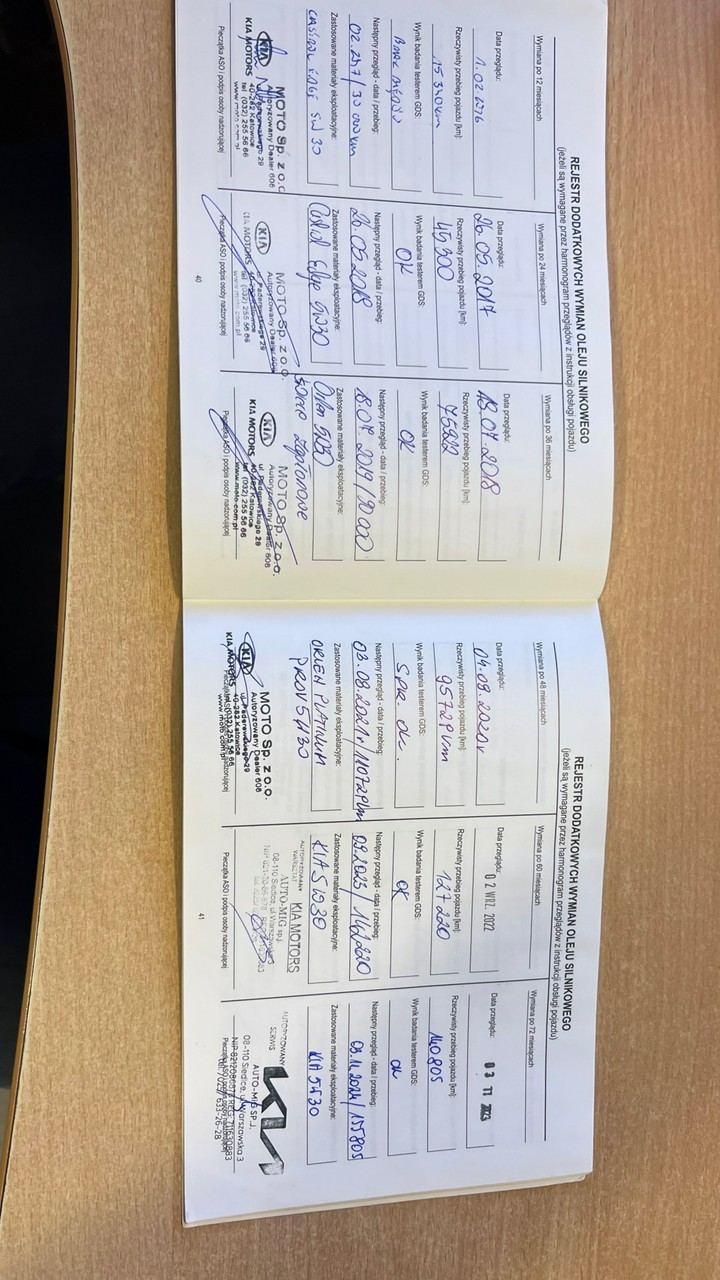 REJESTR DODATKOWYCH WYMIAN OLEJU SILNIKOWEGO
(jeżeli są wymagane przez harmonogram przeglądów z instrukcji obsługi pojazdu)
Wymiana po 12 miesiącach
Data przeglądu:
1.02.2016
Rzeczywisty przebieg pojazdu [km]:
15 340km
Wynik badania testerem GDS:
Następny przegląd - data / przebieg:
02.2017/30 000km
Zastosowane materiały eksploatacyjne:
CASTROL EDGE 5W30
MOTO Sp. z o.o.
Autoryzowany Dealer 606
ul. Paderewskiego 29
40-282 Katowice
KIA MOTORS
tel (032) 255 56 66
www.moto.com.pl
KIA
Pieczątka ASO i podpis osoby nadzorującej
Wymiana po 24 miesiącach
Data przeglądu:
26.05.2017
Rzeczywisty przebieg pojazdu [km]:
45300
Wynik badania testerem GDS:
OK
Następny przegląd - data / przebieg:
26.05.2018
Zastosowane materiały eksploatacyjne:
Castrol Edge 5W30
MOTO Sp. z o.o.
Autoryzowany Dealer 606
ul. Paderewskiego 29
KIA
KIA MOTORS
tel (032) 255 56 66
www.moto.com.pl
Pieczątka ASO i podpis osoby nadzorującej
Wymiana po 36 miesiącach
Data przeglądu:
18.07.2018
Rzeczywisty przebieg pojazdu [km]:
75922
Wynik badania testerem GDS:
OK
Następny przegląd - data / przebieg:
18.07.2019/90000
Zastosowane materiały eksploatacyjne:
Orlen 5W30
MOTO Sp. z o.o.
Autoryzowany Dealer 606
ul. Paderewskiego 29
40-282 Katowice
KIA
KIA MOTORS
tel (032) 255 56 66
www.moto.com.pl
Pieczątka ASO i podpis osoby nadzorującej
40
REJESTR DODATKOWYCH WYMIAN OLEJU SILNIKOWEGO
(jeżeli są wymagane przez harmonogram przeglądów z instrukcji obsługi pojazdu)
Wymiana po 48 miesiącach
Data przeglądu:
04.09.2020r
Rzeczywisty przebieg pojazdu [km]:
95729km
Wynik badania testerem GDS:
SPR. OK.
Następny przegląd - data / przebieg:
03.08.2021/110729km
Zastosowane materiały eksploatacyjne:
ORLEN PLATINUM
MOTO Sp. z o.o.
Autoryzowany Dealer 606
ul. Paderewskiego 29
40-282 Katowice
KIA
KIA MOTORS
tel (032) 255 56 66
www.moto.com.pl
Pieczątka ASO i podpis osoby nadzorującej
Wymiana po 60 miesiącach
Data przeglądu:
02 WRZ. 2022
Rzeczywisty przebieg pojazdu [km]:
127220
Wynik badania testerem GDS:
OK
Następny przegląd - data / przebieg:
09.2023/142220
Zastosowane materiały eksploatacyjne:
KIA 5W30
KIA MOTORS
AUTORYZOWANY
WARSZTAT
AUTO-MIG sp.j.
08-110 Siedlce, ul. Warszawska 3
Pieczątka ASO i podpis osoby nadzorującej
Wymiana po 72 miesiącach
Data przeglądu:
03 11 2023
Rzeczywisty przebieg pojazdu [km]:
140805
Wynik badania testerem GDS:
OK
Następny przegląd - data / przebieg:
03.11.2024/155805
Zastosowane materiały eksploatacyjne:
KIA 5W30
KIA
AUTORYZOWANY
SERWIS
AUTO-MIG SP.J.
08-110 Siedlce, ul. Warszawska 3
Pieczątka ASO i podpis osoby nadzorującej
41